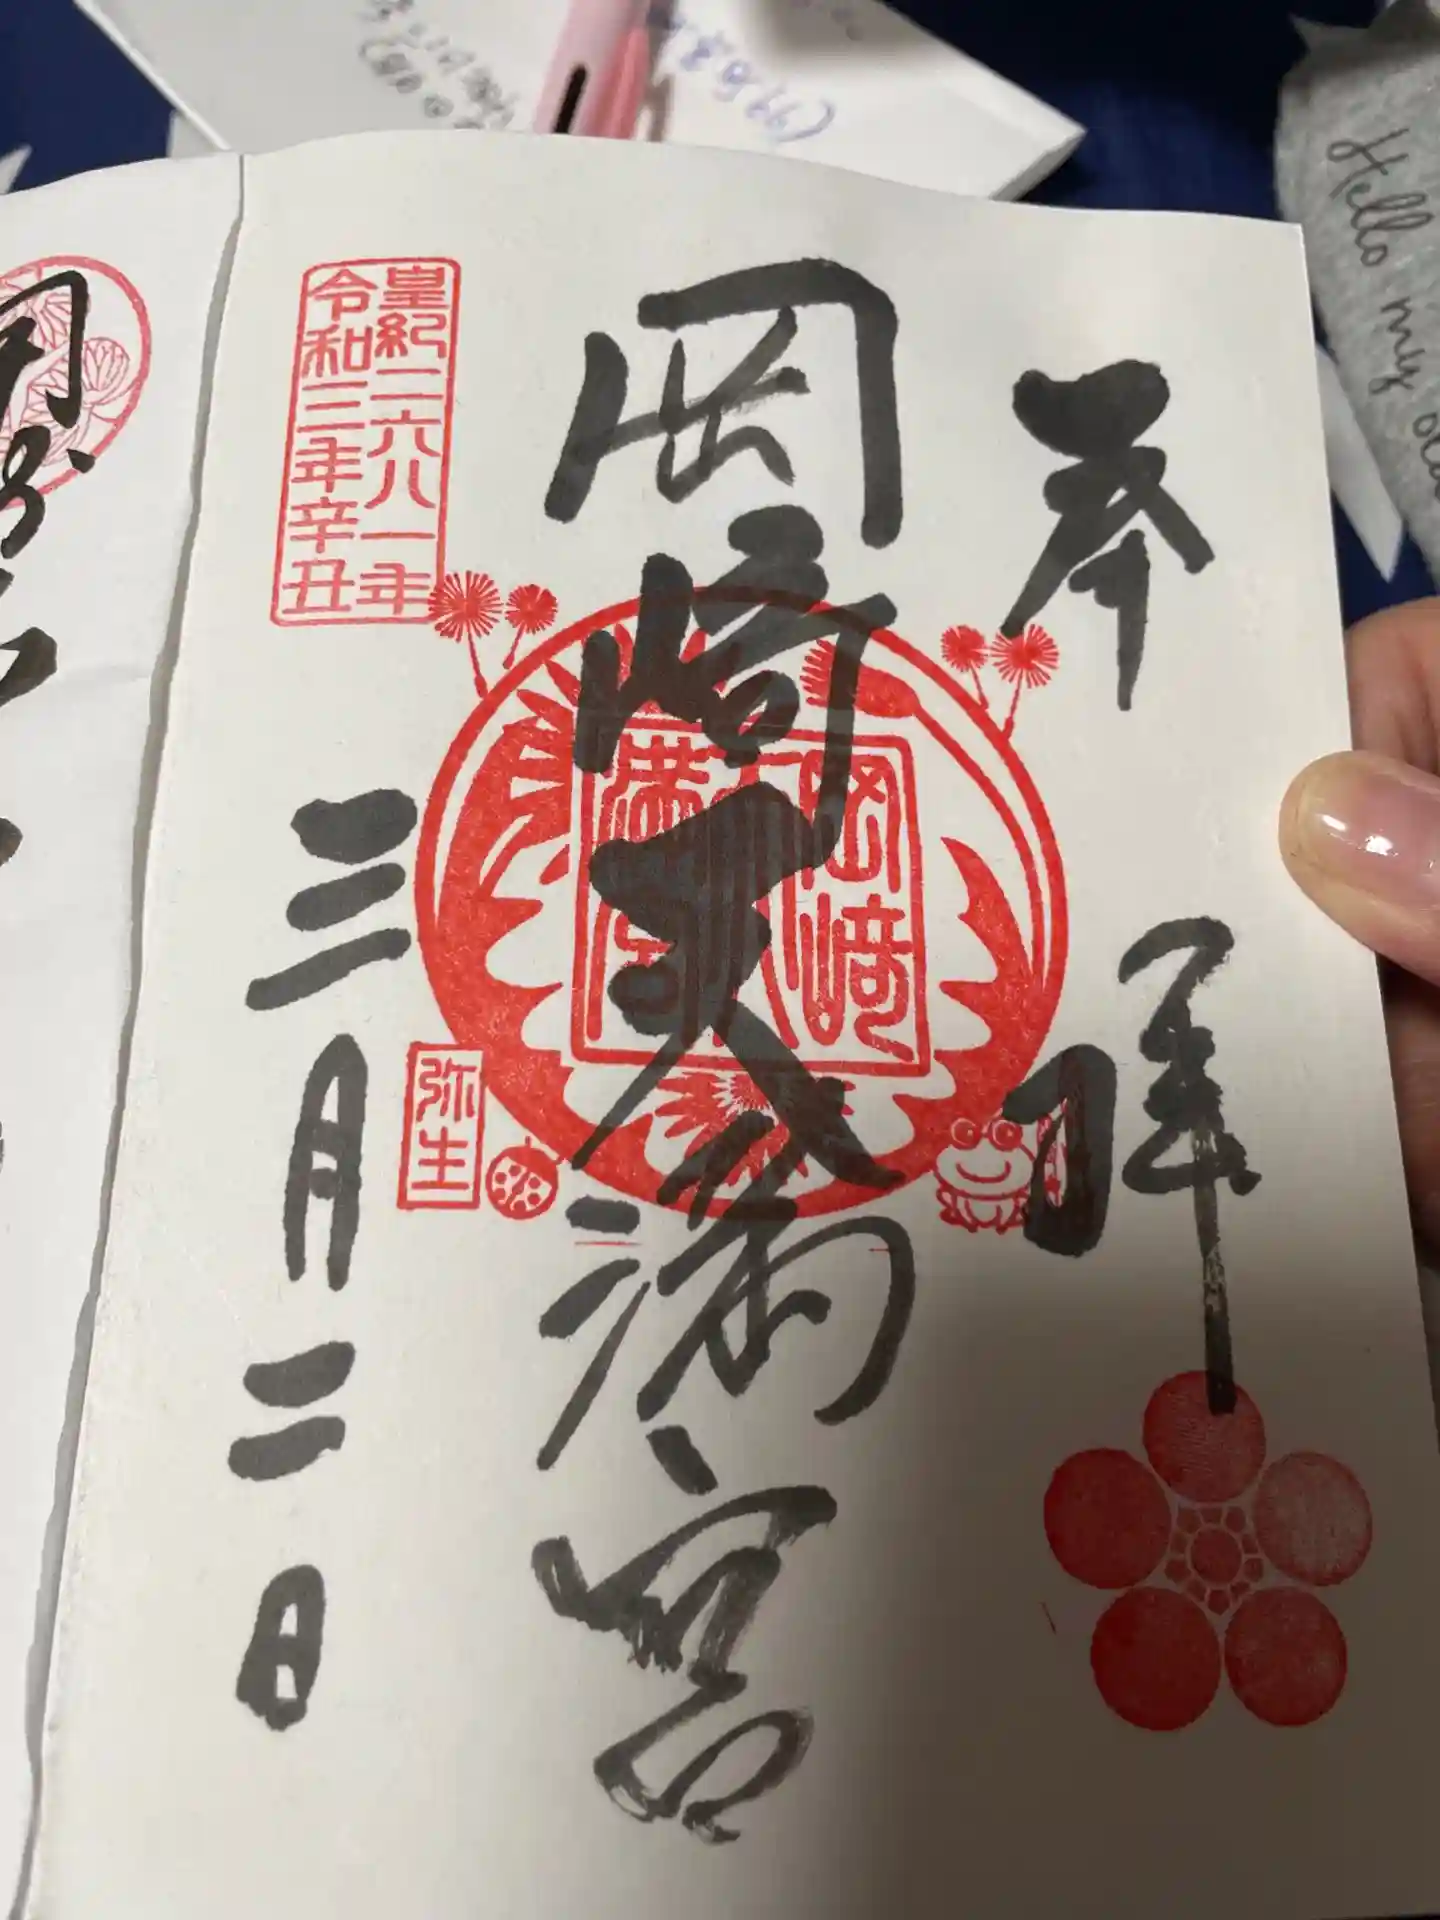 奉拝
岡崎天満宮
三月二日
皇紀二六八一年
令和三年辛丑
岡崎
弥生
Hello my